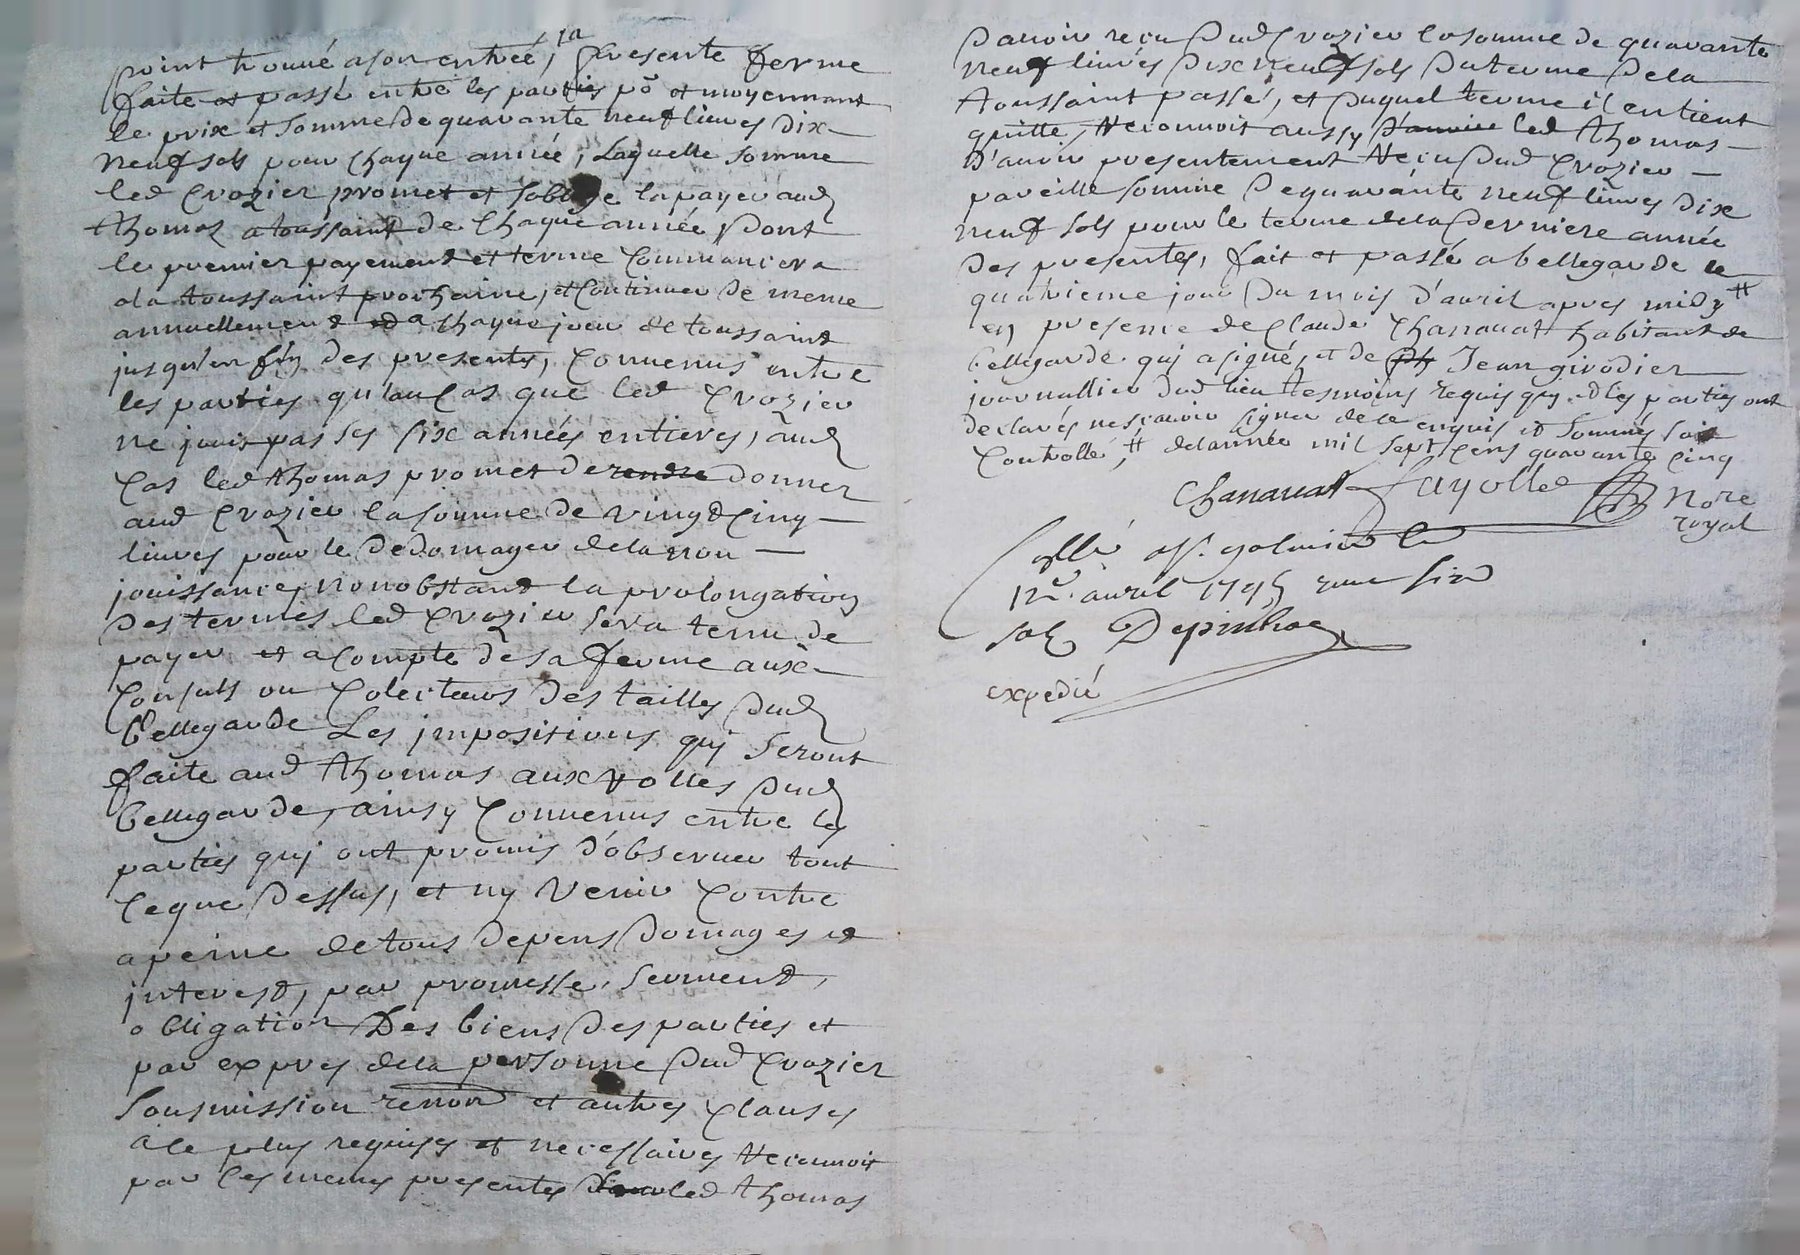 point trouvé a son entrée, la presente ferme
faite et passé entre les parties po et moyennant
le prix et somme de quarante neuf livres dix
neuf sols pour chaque année, laquelle somme
led Crozier promet et soblige la payer aud
thomas a toussaint de Chaque année, Dont
le premier payement et terme Commancera
ala toussaint prochaine, et Continuer de meme
annuellement a Chaque jour de toussaint
jusqu'en fin des presentes, Convenus entre
les parties qu'au Cas que led Crozier
ne jouir pas les six années entieres, aud
Cas led thomas promet de rendre donner
aud Crozier la somme de vingt Cinq
livres pour le Dedomager de la non
jouissance, nonobstant la prolongation
Des termes led Crozier sera tenu de
payer et a Compte de sa ferme aux
Consuls ou Colecteurs Des tailles Dud
Bellegarde Les jmpositions quj seront
faite aud thomas aux rolles Dud
bellegarde, ainsy Convenus entre les
parties quj ont promis d'observer tout
Ceque Dessus, et ny Venir Contre
a peine de tous Depens Domages et
jnterest, par promesse, serment,
obligation Des biens Des parties et
par expres de la personne Dud Crozier
Sousmission renon et autres Clauses
a le plus requises et necessaires reconnoit
par les memes presentes led thomas
Davoir reçu Dud Crozier la somme de quarante
neuf livres Dix neuf sols Du terme De la
toussaint passé, et Duquel terme il en tient
quitte, reconnoit aussy D'avoir led thomas
D'avoir presentement reçu Dud Crozier
pareille somme De quarante neuf livres Dix
neuf sols pour le terme de la Derniere année
Des presentes, fait et passé a bellegarde le
quatrieme jour Du mois D'avril apres midy #
en presence de Claude Chanavat habitant de
bellegarde quj a signé, et de Jean girodier
journallier Dud lieu tesmoins requis quj et les parties ont
declarés ne sçavoir signer de ce enquis et sommés soit
Controllé, # de lannée mil sept Cens quarante Cinq
Chanavat Fayolle Nore
royal
Collé a St. galmier le
12e. avril 1745 reçu six
sols Depinhac
expedié